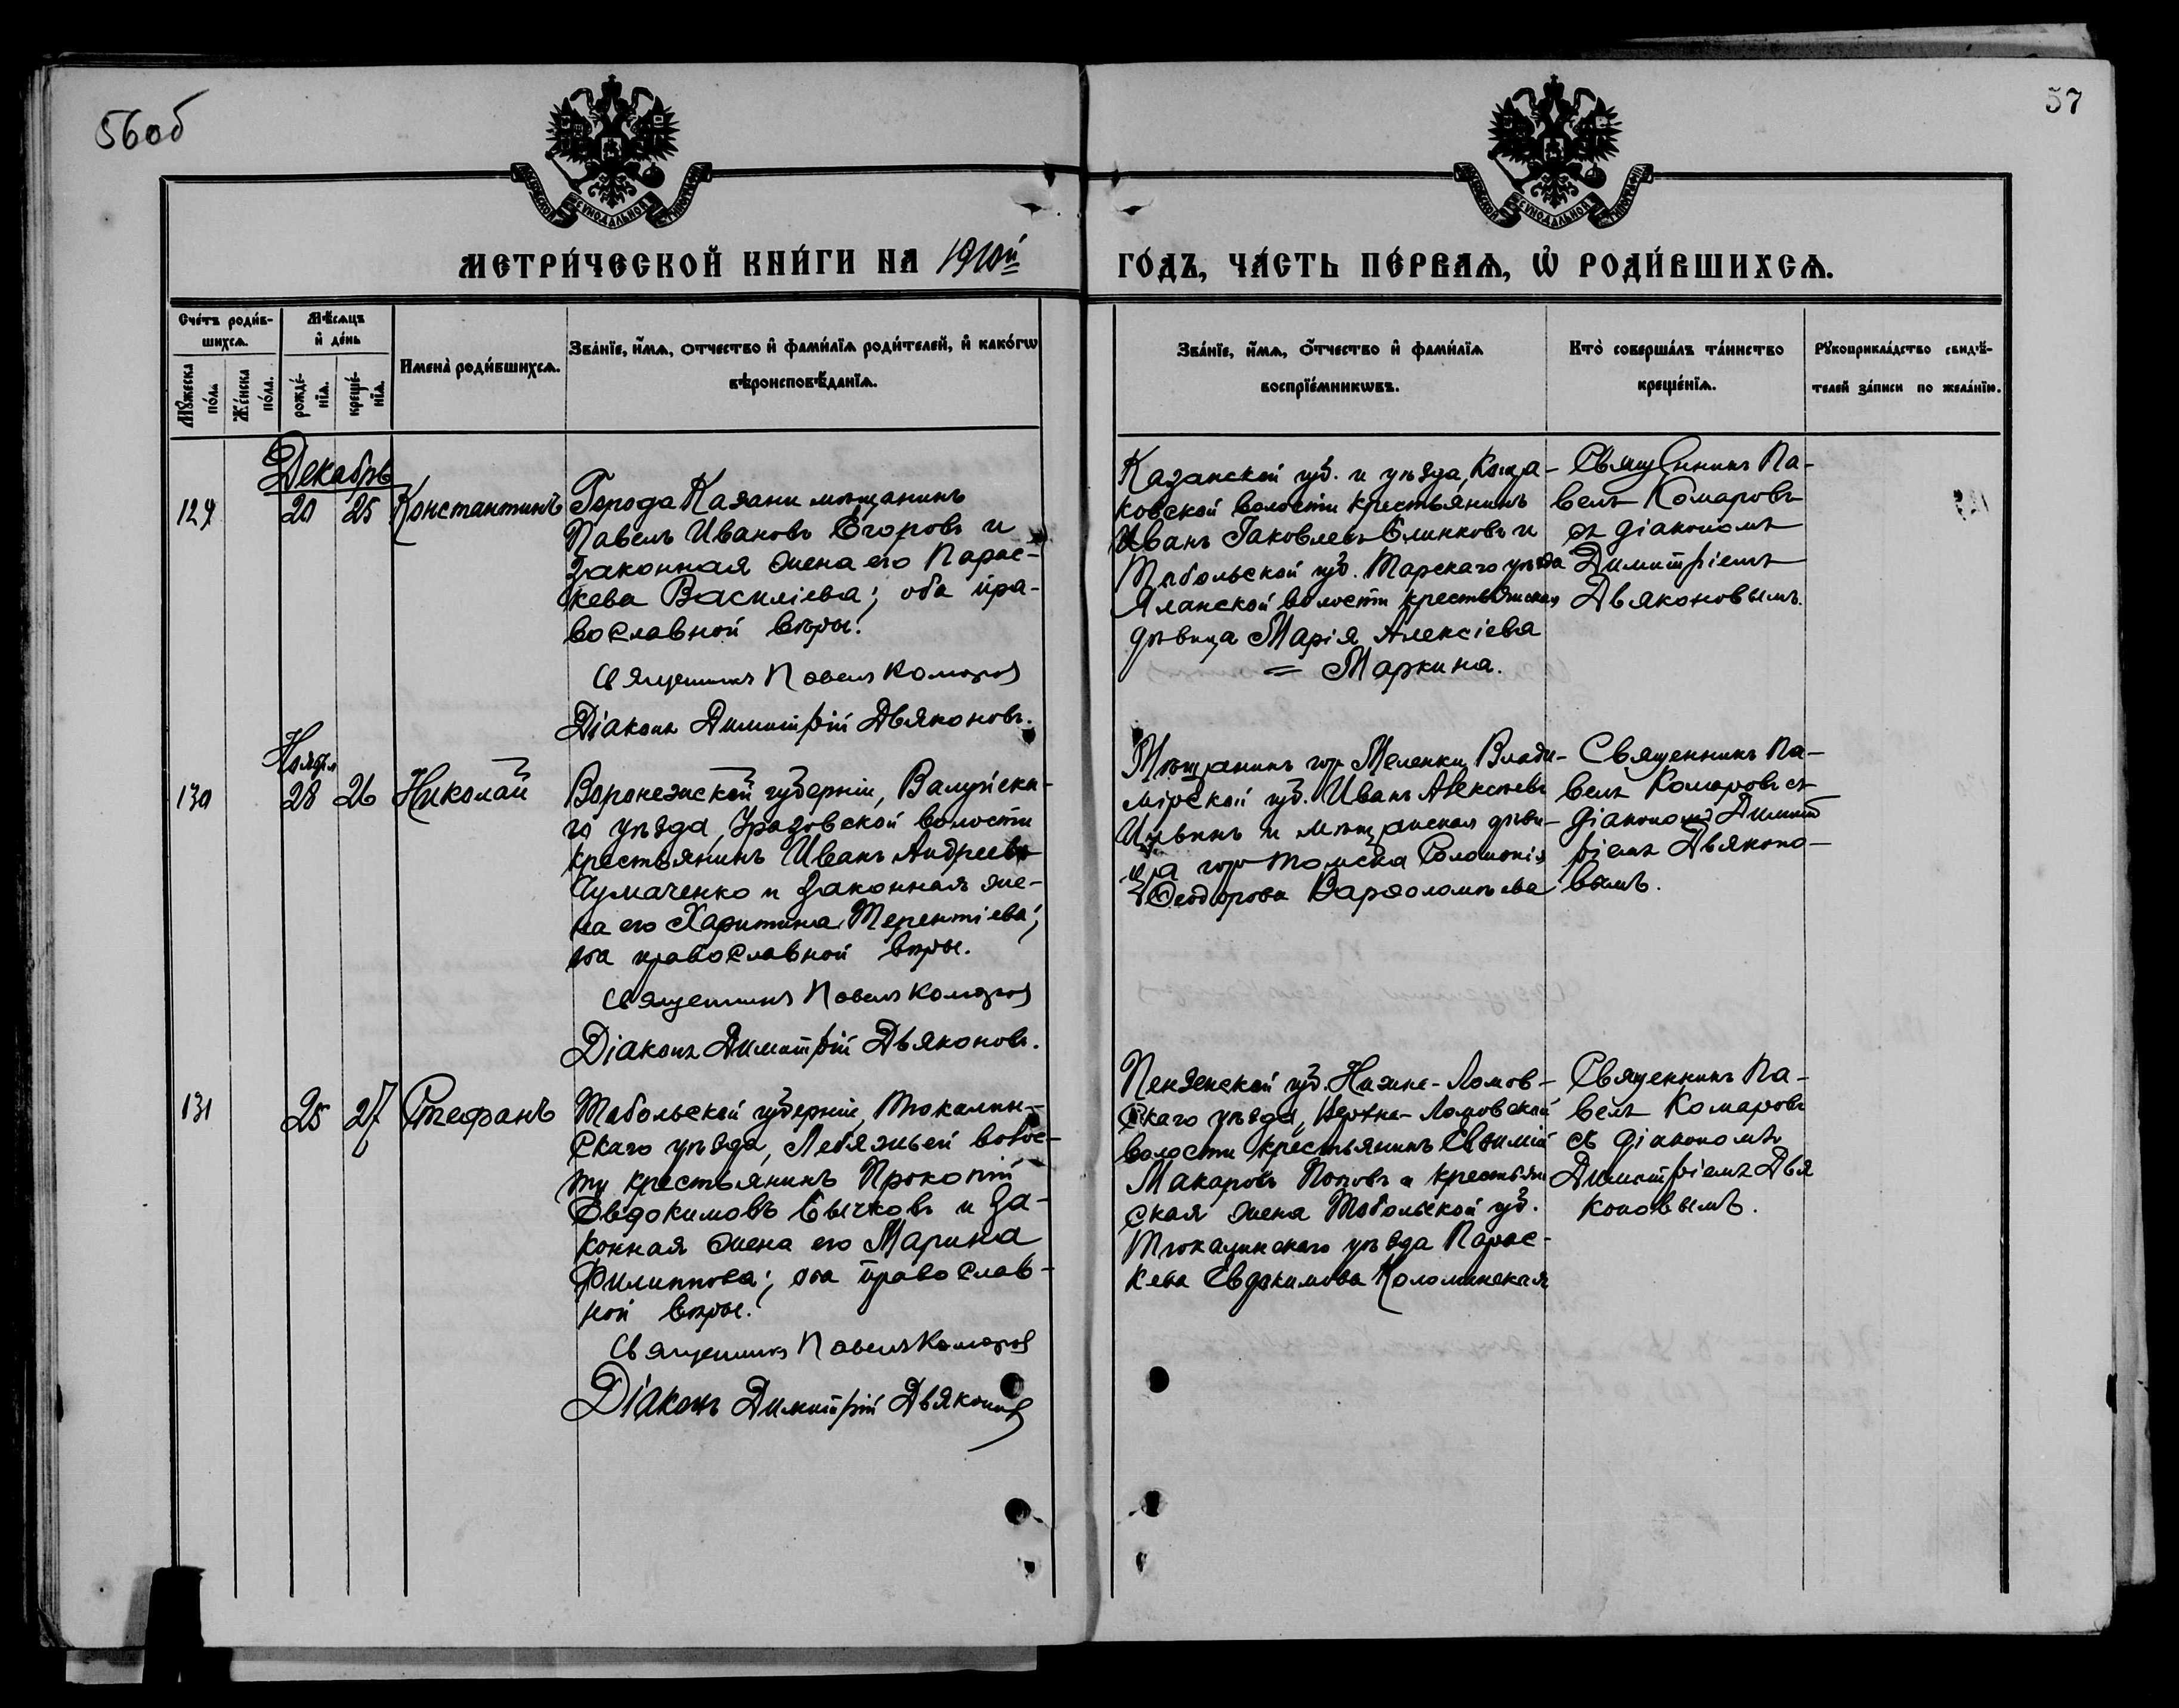 56об
57
СѴНОДАЛЬНОЙ
СѴНОДАЛЬНОЙ
МЕТРИ́ЧЕСКОЙ КНИ́ГИ НА 1910й
ГО́ДЪ, ЧА́СТЬ ПЕ́РВАѦ, Ѡ҆ РОДИ́ВШИХСѦ.
Сче́тъ роди́в-
шихсѧ.
Мѣ́сѧцъ
и҆ де́нь
Имена̀ роди́вшихсѧ.
Зва́нїе, и҆́мѧ, ѻ҆́тчество и҆ фами́лїѧ роди́телей, и҆ како́гѡ
вѣроисповѣ́данїѧ.
Мꙋ́жеска
по́ла
Же́нска
по́ла.
рожде́-
нїѧ.
креще́-
нїѧ.
Зва́нїе, и҆́мѧ, ѻ҆́тчество и҆ фами́лїѧ
воспрїе́мникѡвъ.
Кто̀ соверша́лъ та́инство
креще́нїѧ.
Рꙋкоприкла́дство свидѣ́-
телей за́писи по жела́нїю.
Декабрь
129
20 25 Константинъ
Города Казани мѣщанинъ
Павелъ Ивановъ Егоровъ и
законная жена его Парас-
кева Василіева; оба пра-
вославной вѣры.
Священникъ Павелъ Комаров
Діаконъ Димитрій Дьяконовъ.
Казанской губ. и уѣзда,
ковской волости крестьянинъ
Иванъ Іаковлевъ Блинковъ и
Тобольской губ. Тарскаго уѣзда
Яланской волости крестьянская
дѣвица Марія Алексіева
= Маркина.
Священникъ Па-
велъ Комаровъ
съ діакономъ
Димитріемъ
Дьяконовымъ.
Ноября
130
28 26 Николай
Воронежской губерніи, Валуйска-
го уѣзда, Уразовской волости
крестьянинъ Иванъ Андреевъ
Чумаченко и законная же-
на его Харитина Терентіева;
оба православной вѣры.
Священникъ Павелъ Комаров
Діаконъ Димитрій Дьяконовъ.
Мѣщанинъ гор. Меленки Влади-
мірской губ. Иванъ Алексѣевъ
и мѣщанская дѣви-
ца гор Томска Соломонія
Ѳеодорова Варѳоломѣева
Священникъ Па-
велъ Комаровъ съ
діакономъ Димит
ріемъ Дьяконо-
вымъ.
131
25 27 Стефанъ
Тобольской губерніи, Тюкалин-
скаго уѣзда, Лебяжьей волос-
ти крестьянинъ Прокопій
Евдокимовъ Бычковъ и за-
конная жена его Марина
Филиппова; оба православ-
ной вѣры.
Священникъ Павелъ Комаров
Діаконъ Димитрій Дьяконов
Пензенской губ. Нижне-Ломов-
скаго уѣзда, Верхне-Ломовской
волости крестьянинъ Евѳимій
Макаровъ Поповъ и крестьян
ская жена Тобольской губ.
Тюкалинскаго уѣзда Парас-
кева Евдокимова Коломинская
Священникъ Па-
велъ Комаровъ
съ діакономъ
Димитріемъ Дья
коновымъ.